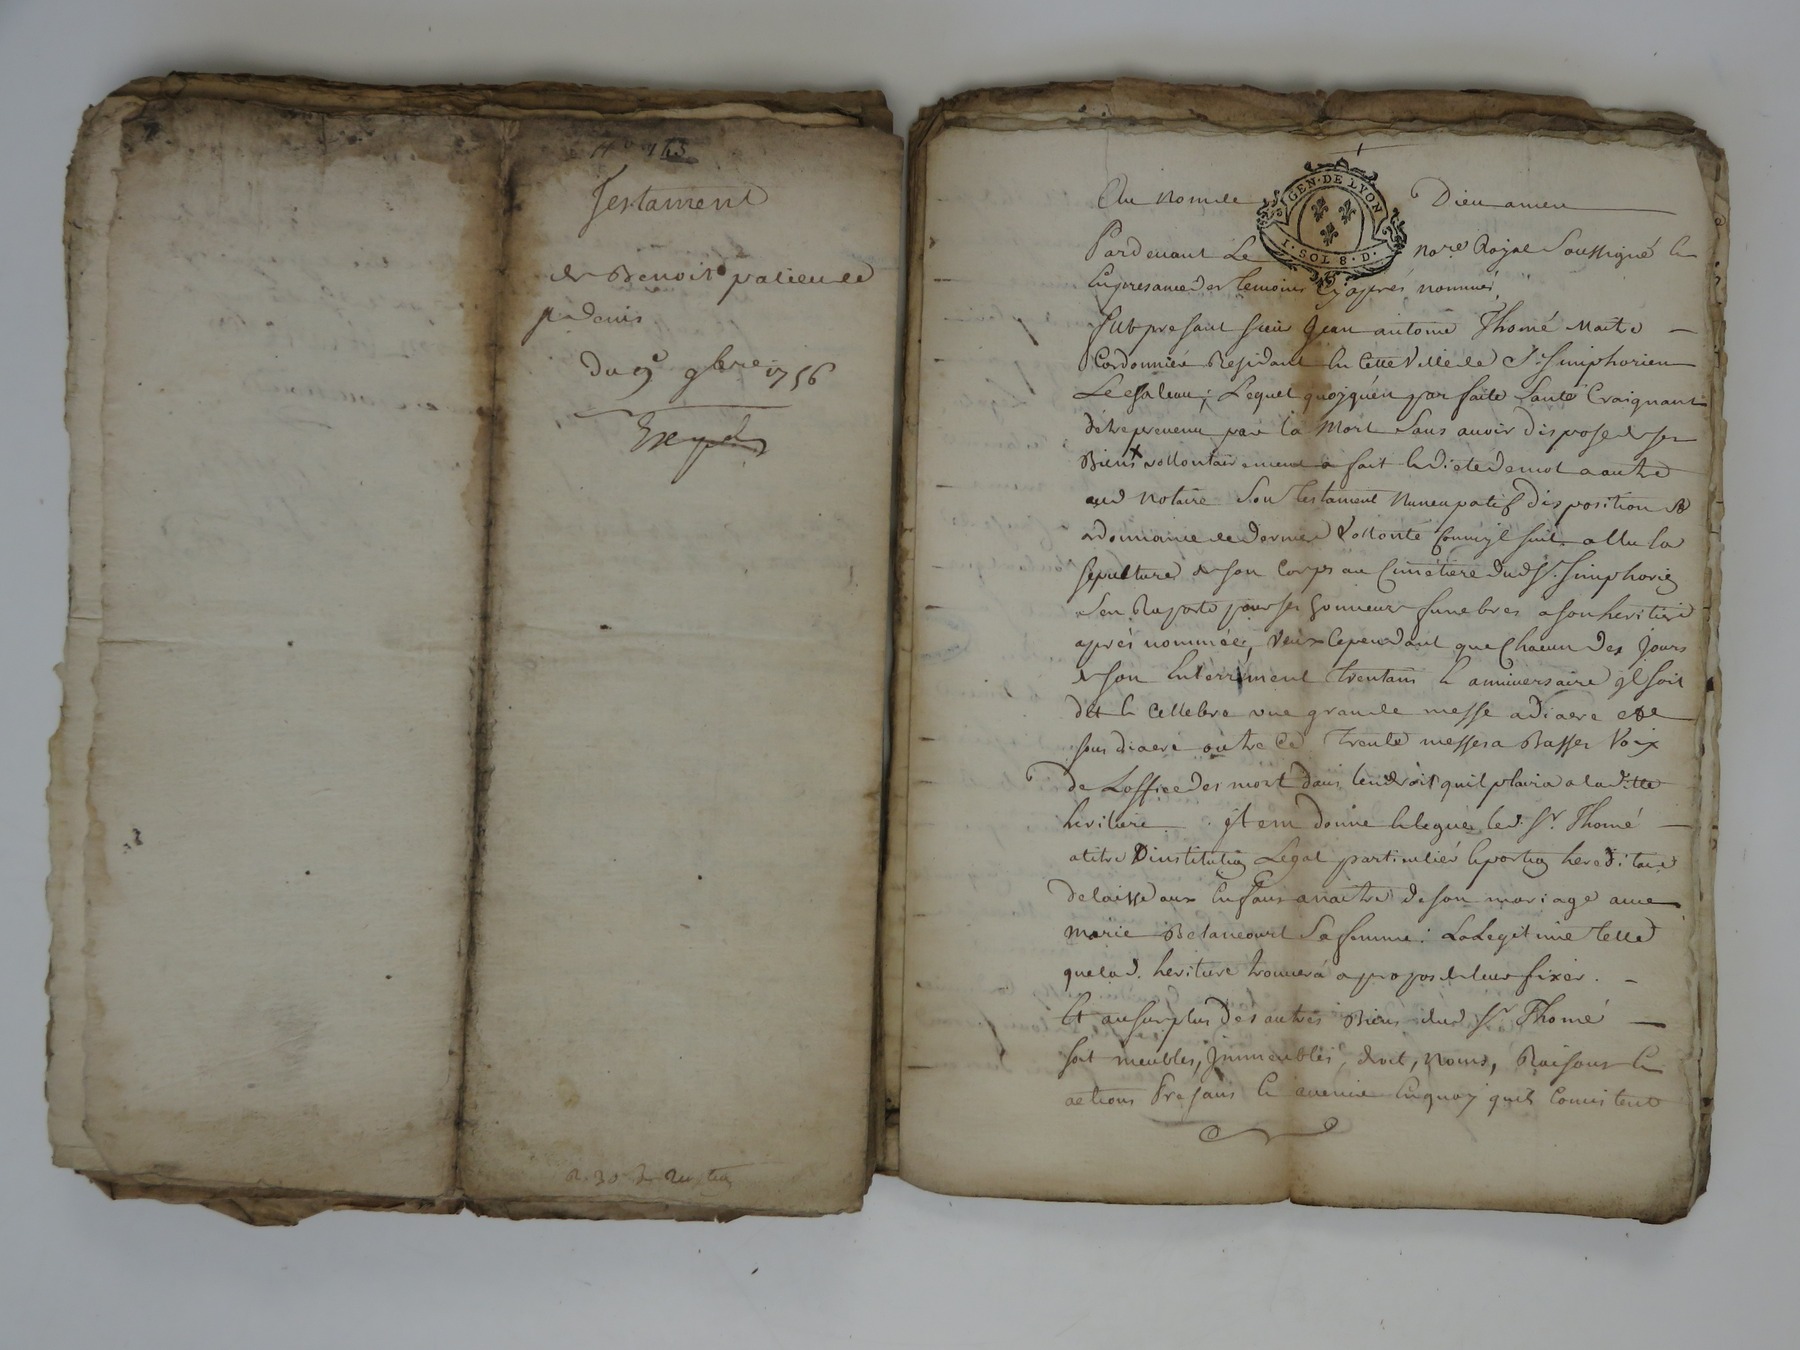 N° 143
Testament
de Benoit patience
p. denis
du 9e 9bre 1756
Expé
Au nom de Dieu amen
GEN·DE LYON
1·SOL 8·D·
Pardevant Le Nore Royal Soussigné &
En presance des temoins Cy après nommés,
fut present sieur Jean antoine Thomé Maitre
Cordonnier Residant En Cette Ville de St Simphorien
Le chateau; Lequel quoyquén parfaite Santé Craignant
détre prevenu par la Mort Sans avoir disposé de ses
Biens vollontairement a fait & dicté de mot a autre
aud Notaire Son testament Nuncupatif disposition &
ordonnance de derniere Vollonté Comm'yl suit. a Elu la
sepulture de son Corps au Cimetiere dud St. Simphorien
S'en Raporte pour ses honneurs funebres a son heritiere
aprés nommée, Veux Cependant que Chacun des Jours
de son Enterrement trentain & anniversaire yl soit
dit & Cellebré une grande messe a diacre et
sous diacre outre Ce trente messes a Basses Voix
de Loffice des mort dans lendroit quil plaira a la ditte
heritiere. Jtem donne & legue led. Sr. Thomé
a titre Dinstitution Legat particulier & portion hereditaire
delaisse aux Enfans a naitre de son mariage avec
marie Betancourt Sa femme: La Legitime telle
que lad. heritiere trouvera a propos de leur fixer.
Et au surplus des autres Biens dud Sr Thomé
soit meubles, Jmmeubles, droit, Noms, Raisons &
actions Presans & avenir Enquoy quils Consistent